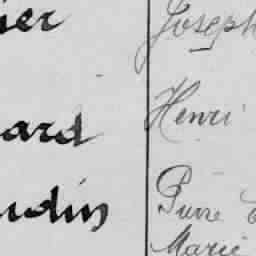 ier Joseph
ard Henri
udin Pierre
Marie